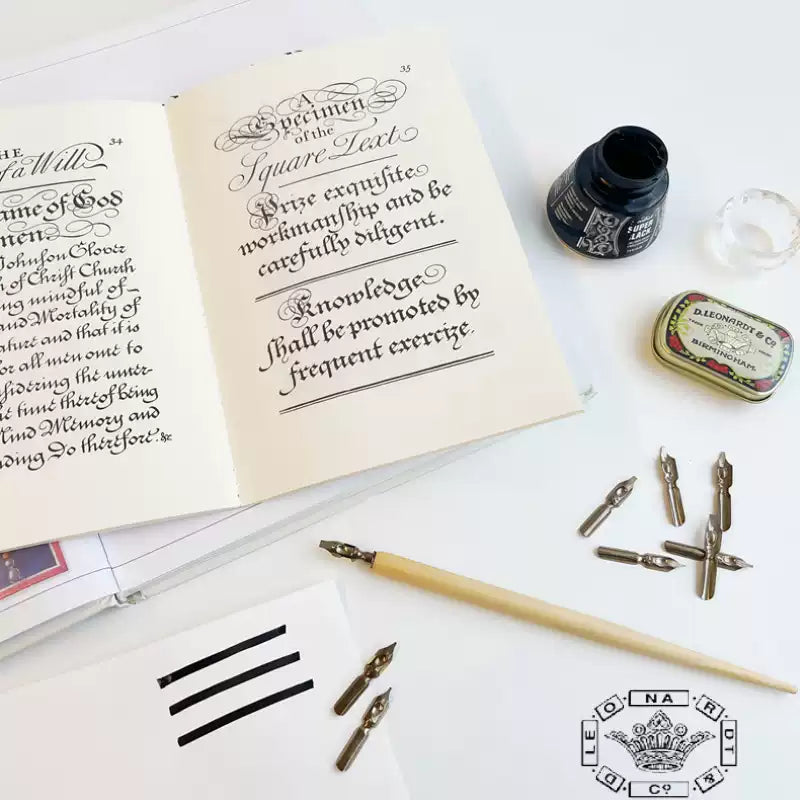 34
HE
of a Will
ame of God
men
Johnson Glover
of Christ Church
ng mindful of
and Mortality of
ature and that it is
for all men one to
sidering the uncer-
e time thereof being
Mind Memory and
ding Do therefore. &c
35
A
Specimen
of the
Square Text
Prize exquiſite
workmanſhip and be
carefully diligent.
Knowledge
ſhall be promoted by
frequent exercize.
SUPER
LACK
D. LEONARDT & Co
BIRMINGHAM
D. LEONARDT & Co